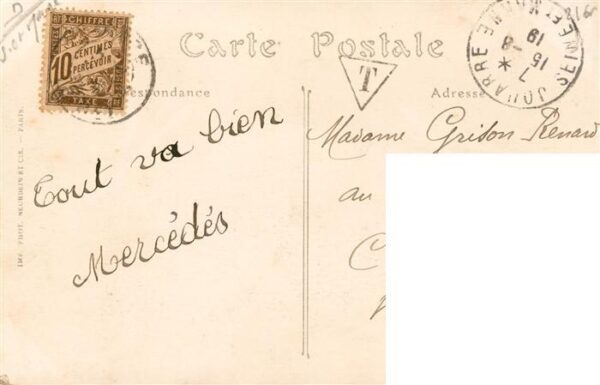 CHIFFRE
10 CENTIMES
A PERCEVOIR
TAXE
Carte Postale
T
JOUARRE
SEINE ET MARNE
15 -8
7
19
*
respondance
Adresse
Tout va bien
Mercédés
Madame Grison Renard
au
C
IMP. PHOT. NEURDEIN ET CIE. - PARIS.